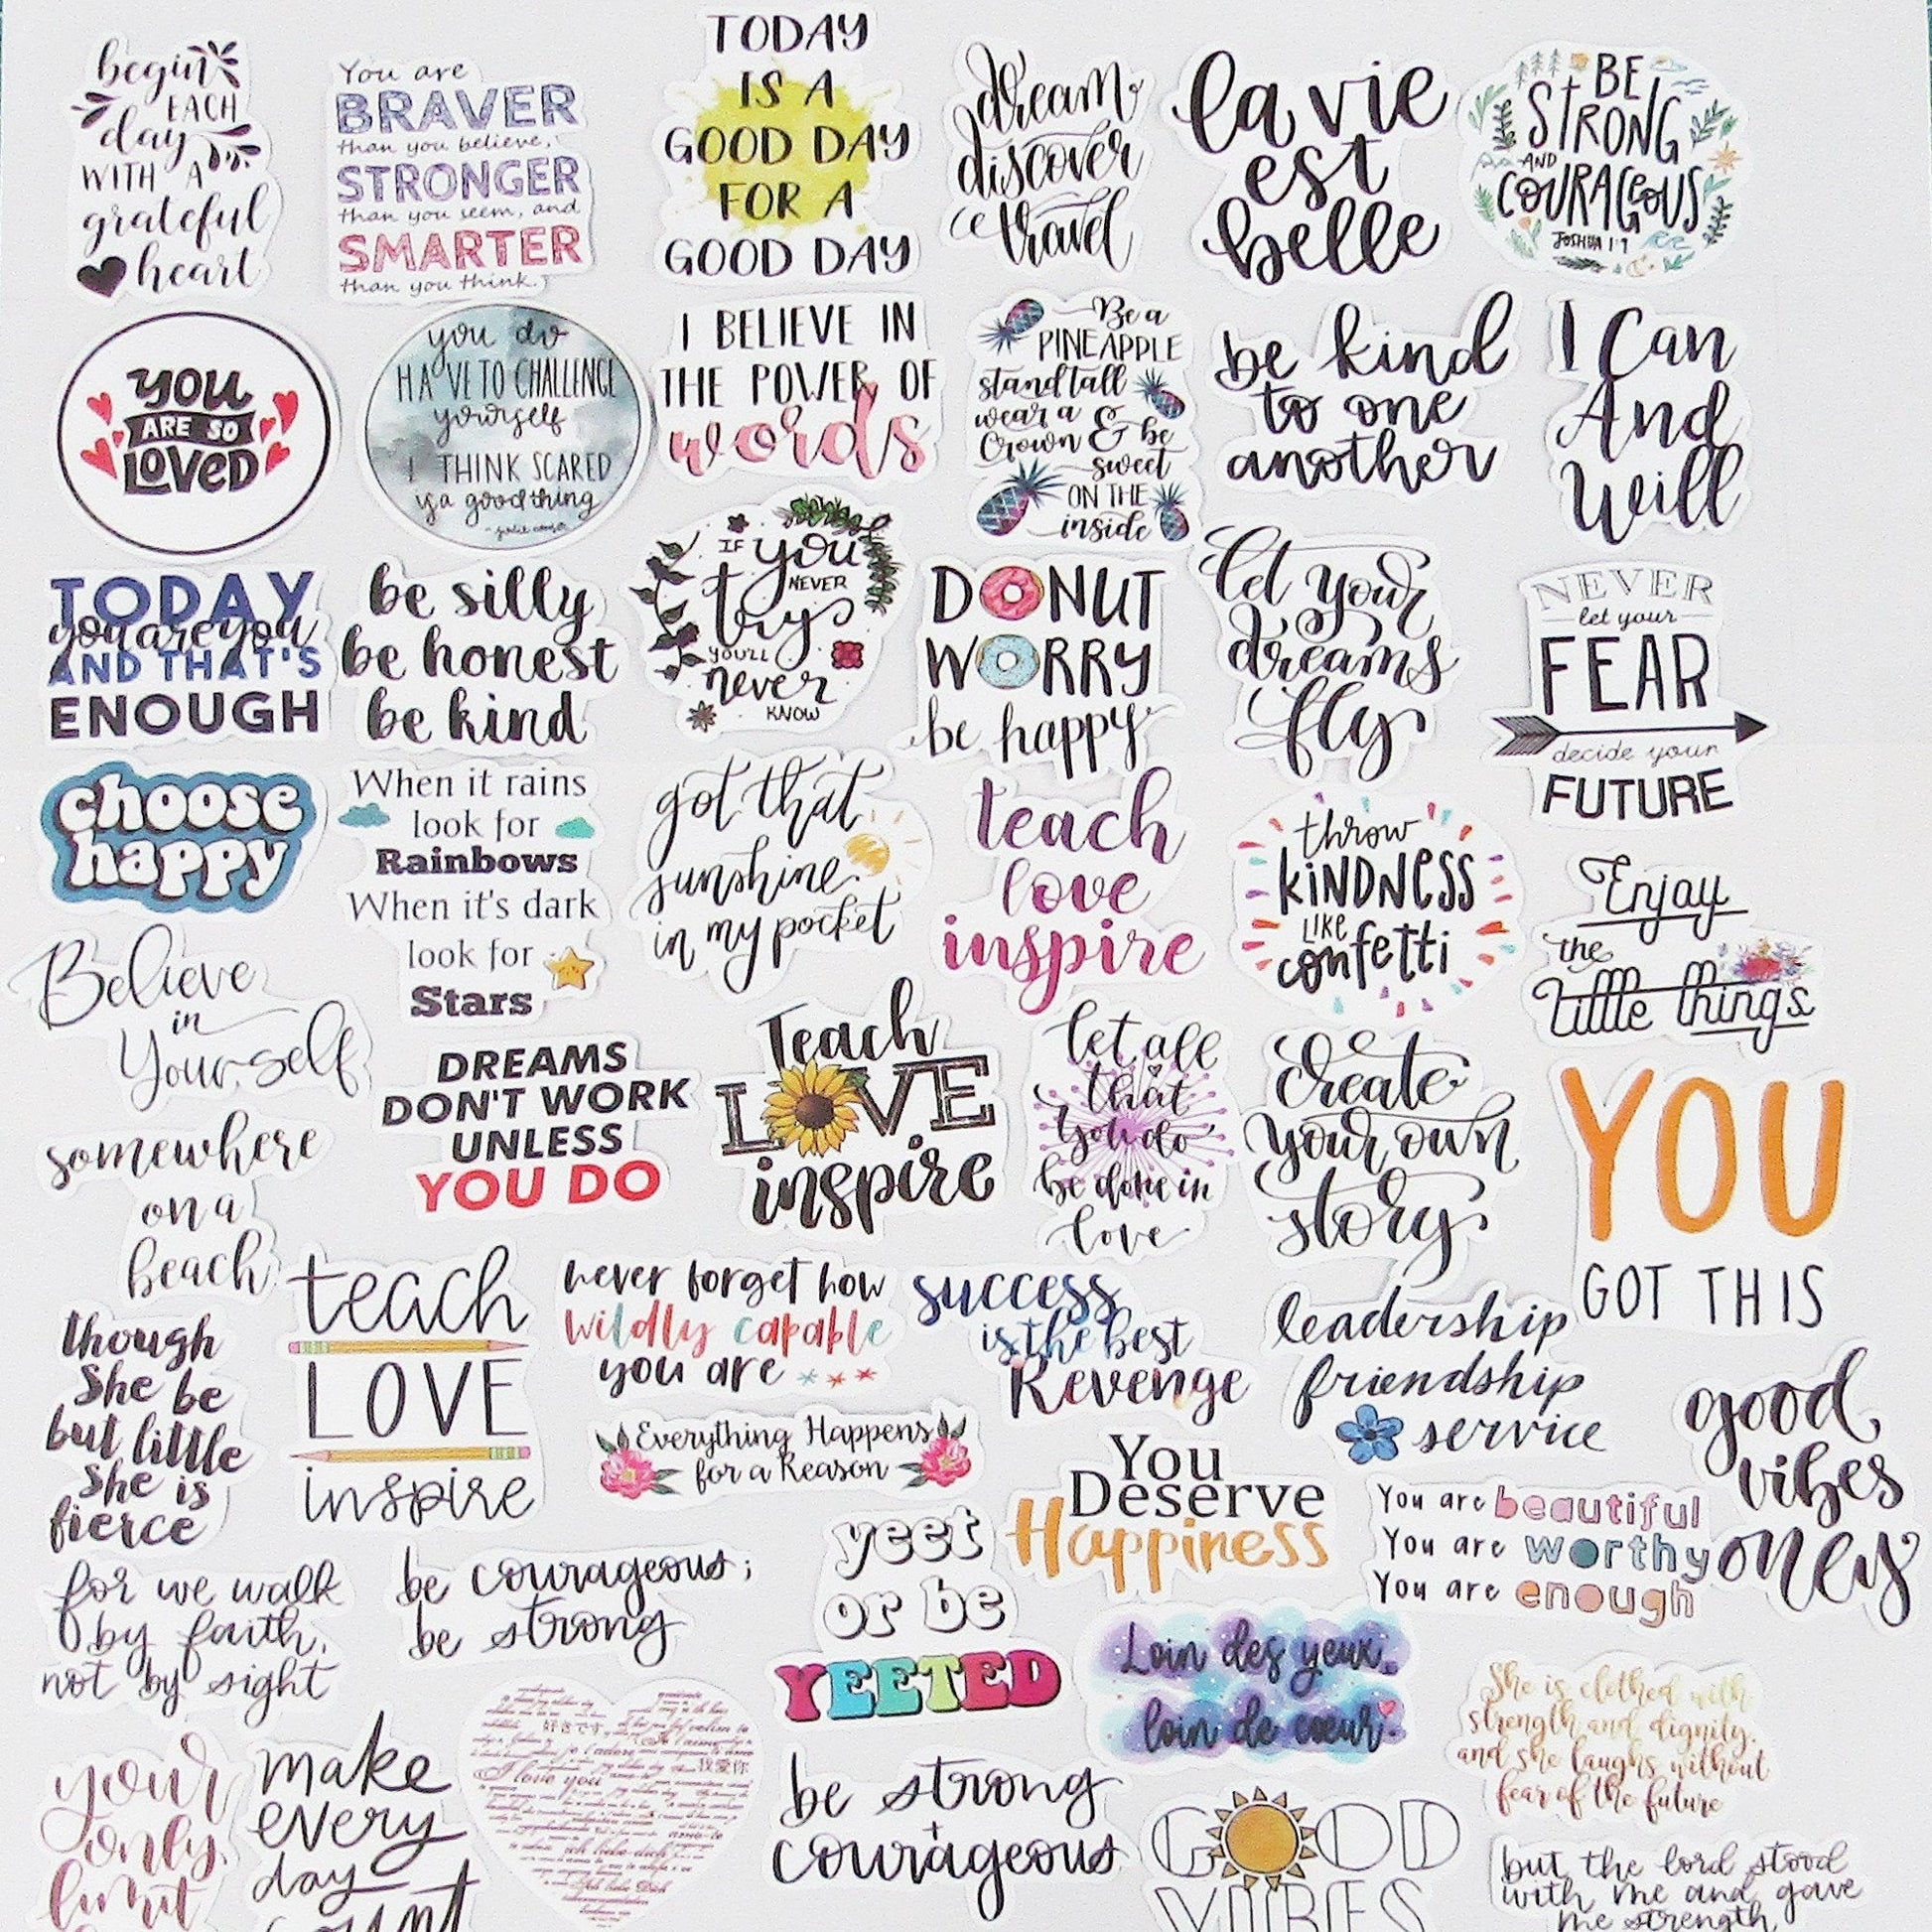 begin
EACH
day
WITH A
grateful
heart
You are
BRAVER
than you believe,
STRONGER
than you seem, and
SMARTER
than you think.
TODAY
IS A
GOOD DAY
FOR A
GOOD DAY
dream
discover
travel
la vie
est
belle
BE
STRONG
AND
COURAGEOUS
JOSHUA 1:9
YOU
ARE SO
LOVED
you do
HAVE TO CHALLENGE
yourself
I THINK SCARED
is a good thing
I BELIEVE IN
THE POWER OF
words
Be a
PINEAPPLE
stand tall
wear a
Crown & be
sweet
ON THE
inside
be kind
to one
another
I Can
And
Will
TODAY
you are you
AND THAT'S
ENOUGH
be silly
be honest
be kind
IF you
NEVER
try
YOU'LL
never
KNOW
DONUT
WORRY
be happy
let your
dreams
fly
NEVER
let your
FEAR
decide your
FUTURE
choose
happy
When it rains
look for
Rainbows
When it's dark
look for
Stars
got that
sunshine
in my pocket
teach
love
inspire
throw
KINDNESS
LIKE
confetti
Enjoy
the
little things
Believe
in
Yourself
DREAMS
DON'T WORK
UNLESS
YOU DO
Teach
LOVE
inspire
let all
that
you do
be done in
love
create
your own
story
YOU
GOT THIS
somewhere
on a
beach
teach
LOVE
inspire
never forget how
wildly capable
you are
success
is the best
Revenge
leadership
friendship
service
good
vibes
only
though
She be
but little
She is
fierce
Everything Happens
for a Reason
You
Deserve
Happiness
You are beautiful
You are worthy
You are enough
for we walk
by faith,
not by sight
be courageous;
be strong
yeet
or be
YEETED
Loin des yeux,
loin de cœur.
She is clothed with
strength and dignity,
and she laughs without
fear of the future
your
only
limit
make
every
day
count
好きです
je t'adore
我爱你
I love you
ich liebe dich
be strong
+
courageous
GOOD
VIBES
but the lord stood
with me and gave
me strength